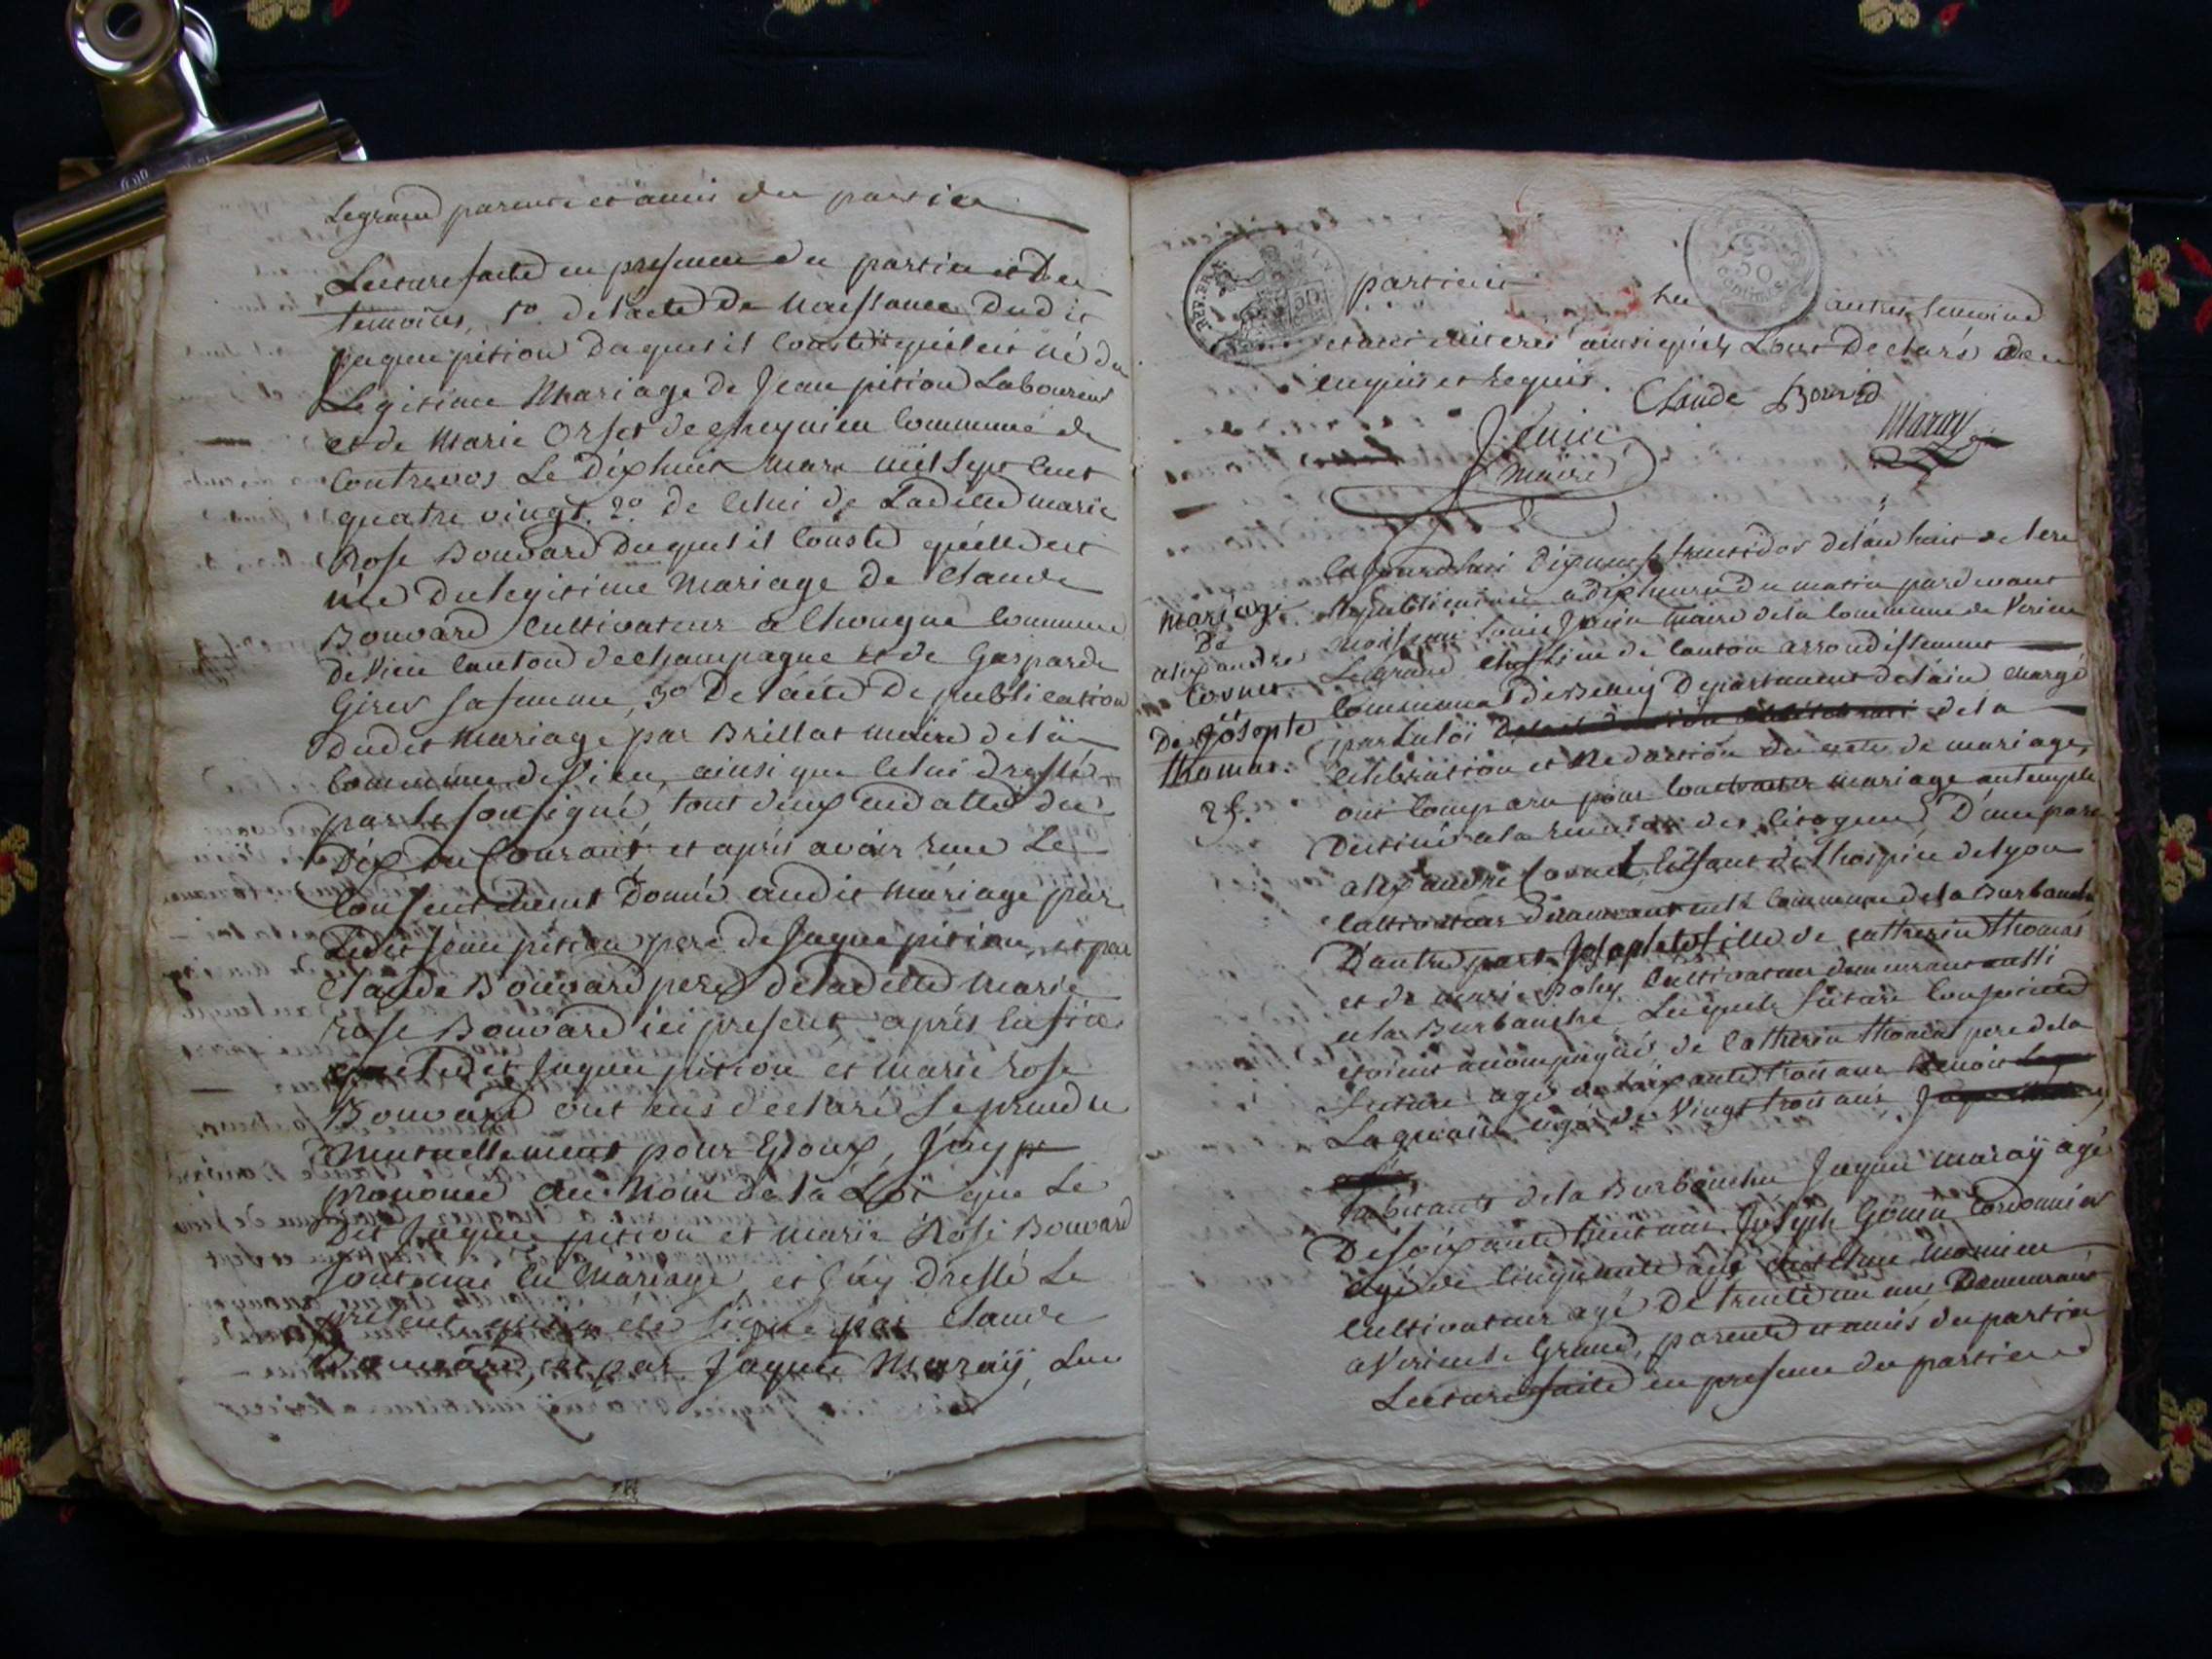 Legrand parents et amis des parties
Lecture faite en presence des parties et Des
temoins, 1º. de l'acte De Naissance dudit
jaque pition duquel il Conste qu'il est né du
Legitime Mariage de Jean pition Laboureur
et de Marie Orset de cheynieu Commune de
Contrevos Le Dixhuit Mars mil Sept Cent
quatre vingt. 2º. de Celui de Ladite marie
Rose Bouvard Duquel il Conste quelle est
née Du legitime Mariage De Claude
Bouvard Cultivateur a Chougne Commune
de Vieu Canton de champagne et de Gasparde
Girer sa femme, 3º De l'acte De publication
Dudit Mariage par Brillat maire de la
Commune de Vieu, ainsi que Celui dressé
par le sousigné, tout deux en datte du
Dix du Courant et aprés avoir reçu Le
Consentement Donné audit Mariage par
Ledit Jean pition pere de Jaque pition, et par
Claude Bouvard pere de Ladite Marie
rose Bouvard ici present, aprés ensuite
que Ledit Jaque pition et marie rose
Bouvard ont eus déclaré Se prendre
Mutuellement pour Epoux, J'ay
prononcé au Nom de la Loi que Le
Dit Jaque pition et marie Rose Bouvard
Sont unis en Mariage, et J'ay Dressé Le
present qui a été Signé par Claude
Bouvard, et par Jaque Maraÿ, Les
REP. FRA. AIN
50
50 Centimes
parties les autres temoins
illiterés ainsi qu'ils L'ont Declaré De
enquis et requis. Claude Bouvard
Maray
Jenin
Maire
Mariage
De
alexandre
Cornet
et
De Josephte
thomas.
25.
Ce Jourdhui Dixneuf fructidor de l'an huit de l'ere
Republicaine a dix heures du matin pardevant
Nous Louis Jenin Maire de la Commune de Virieu
Le grand Cheflieu de Canton arrondissement
Communal de Belley Departement de l'ain Chargé
par La loi de la
Celebration et Redaction des actes de mariage,
ont Comparu pour Contracter mariage au temple
Destiné a la reunion des Citoyens D'une part
alexandre Cornet Enfant de l'hospice de lyon
Cultivateur Demeurant en la Commune de la Burbanche
D'autre part Josephte fille de Catherin thomas
et de marie Poley Cultivateur demeurant aussi
en la Burbanche Lesquels futurs Conjoints
etoient acompagnés de Catherin thomas pere de la
future agé de soixante trois ans Benoit
Lagrange agé de Vingt trois ans
habitants de la Burbanche Jaque maraÿ agé
De soixante huit ans, Joseph Gouin Cordonnier
agé de Cinquante ans Monieu
Cultivateur agé De trente un ans Demeurant
a Virieu Le Grand, parents et amis des parties
Lecture faite en presence des parties